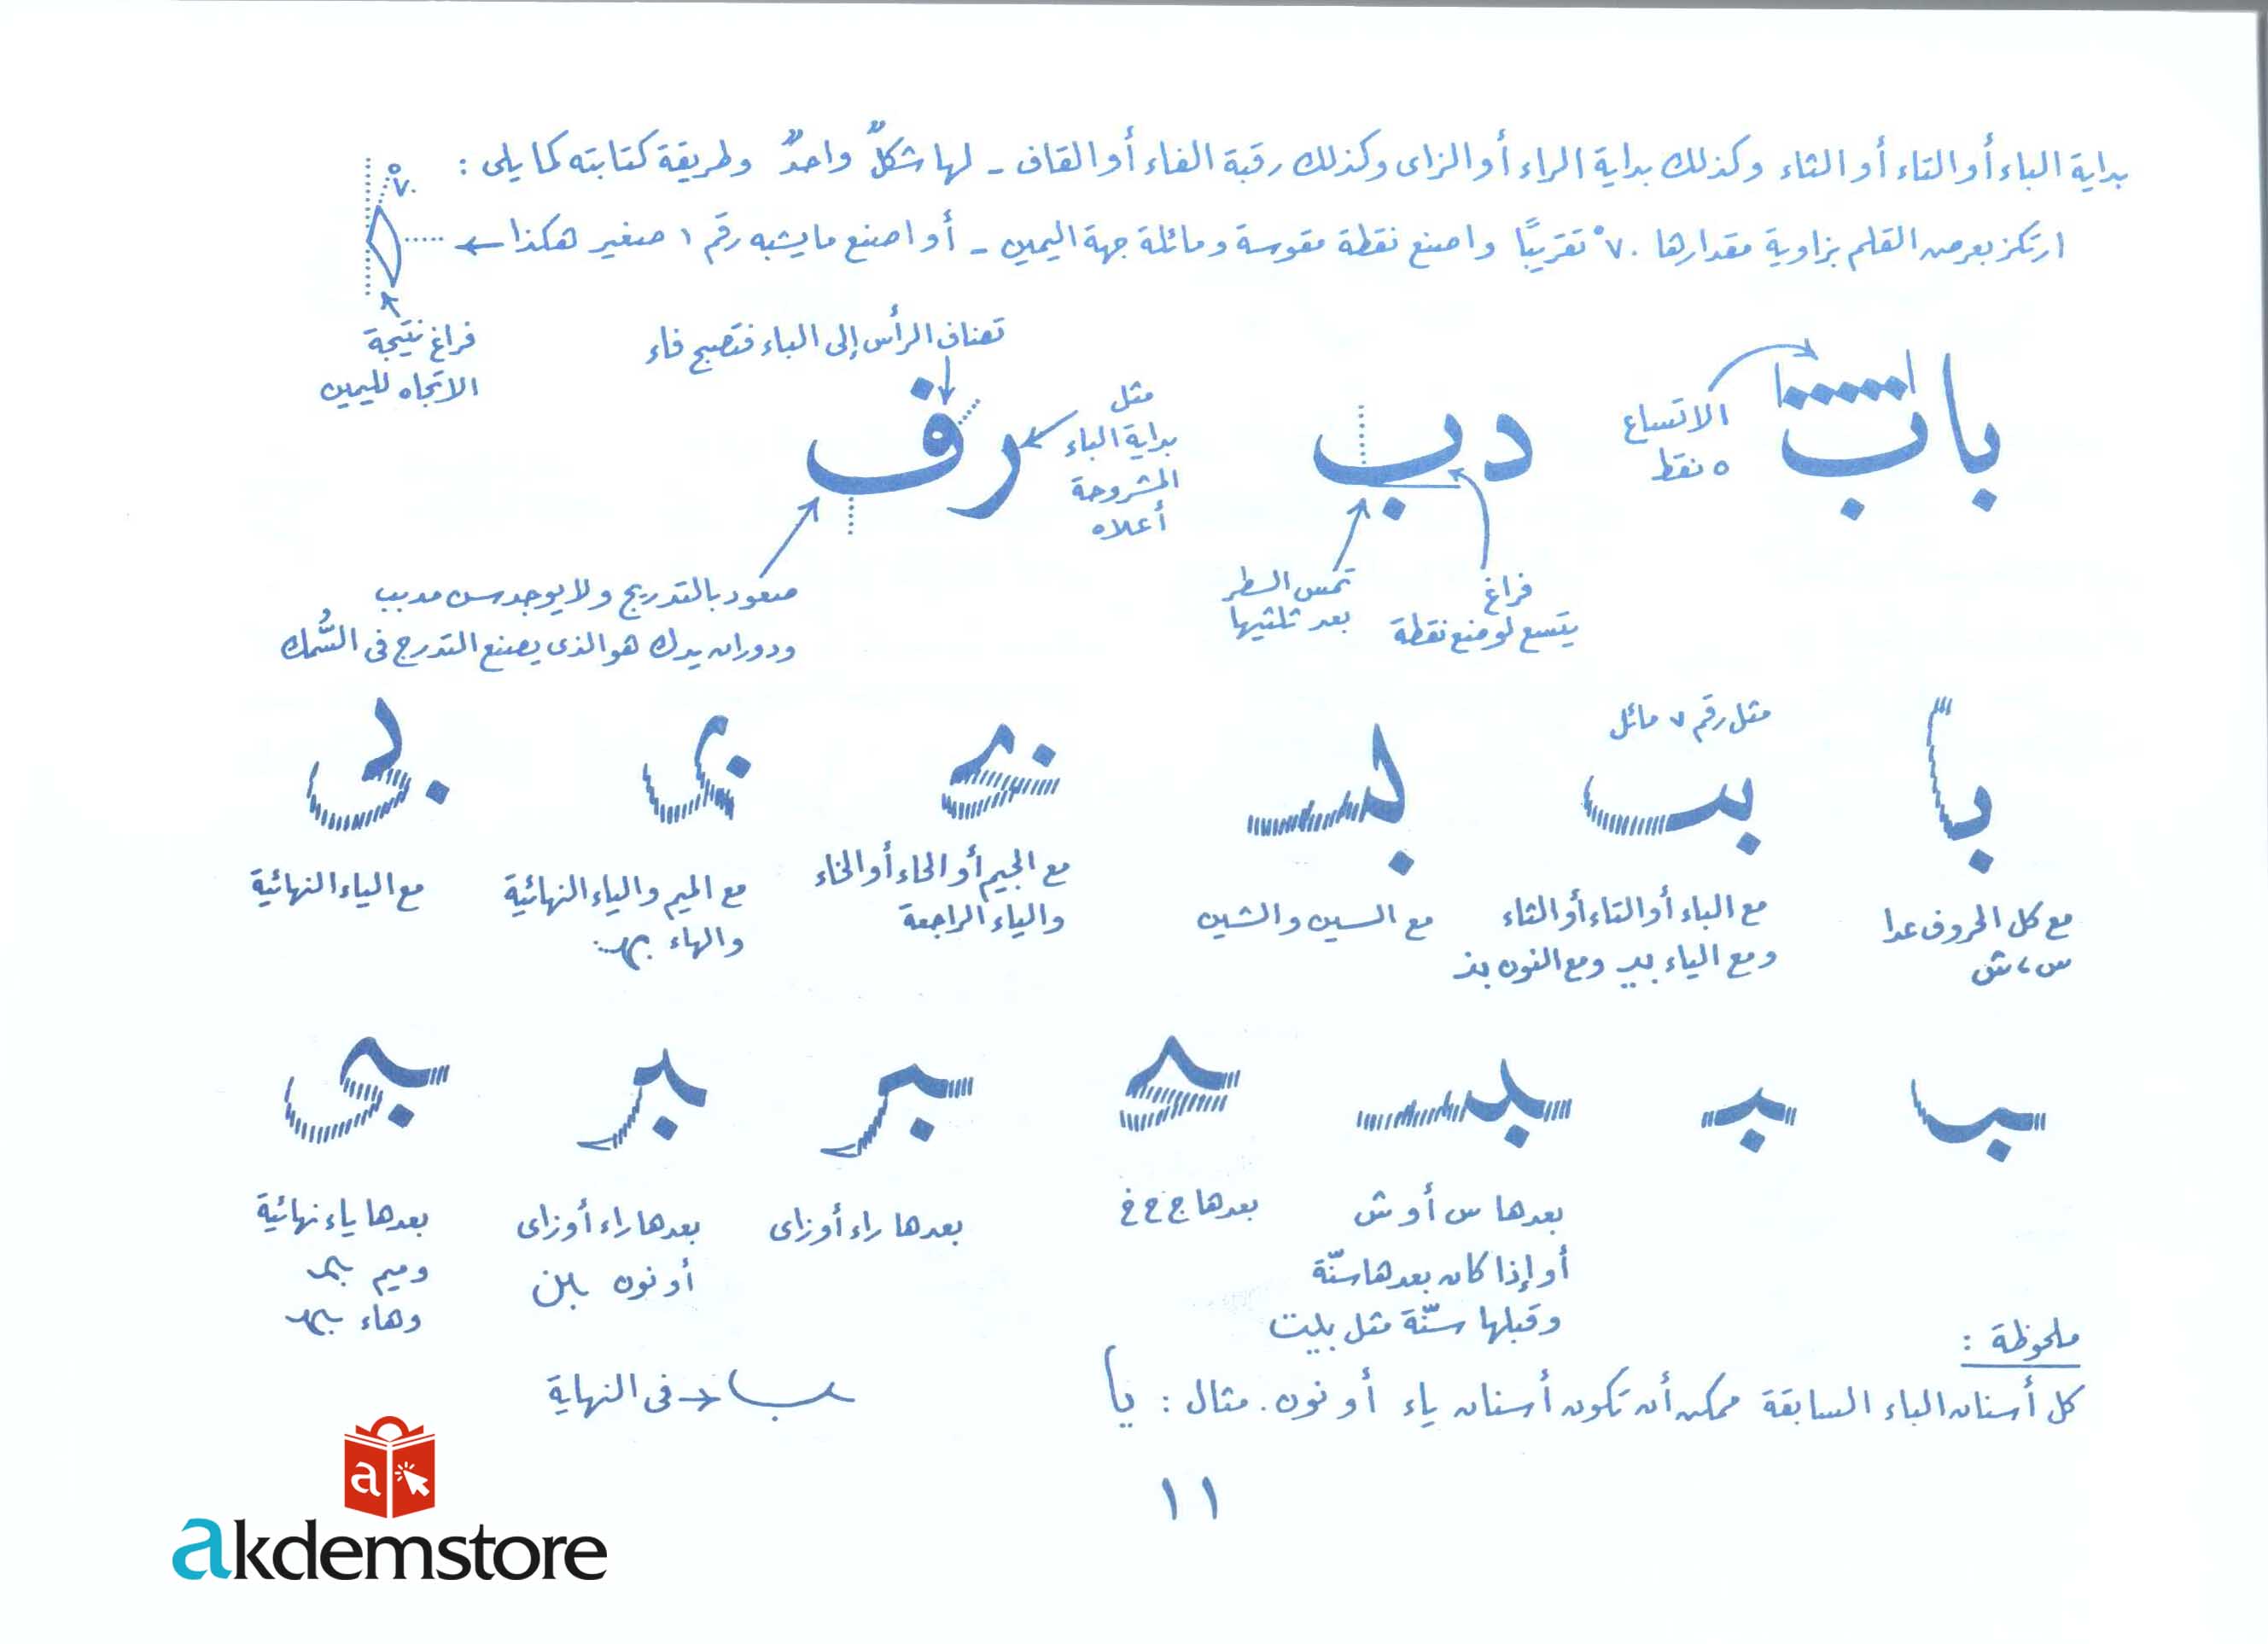 بداية الباء أو التاء أو الثاء وكذلك بداية الراء أو الزاى وكذلك رقبة الفاء أو القاف - لها شكلٌ واحدٌ وطريقة كتابته كما يلى :
ارتكز بعرض القلم بزاوية مقدارها ٧٠° تقريبًا واصنع نقطة مقوسة ومائلة جهة اليمين - أو اصنع ما يشبه رقم ١ صغير هكذا
٧٠°
فراغ نتيجة
الاتجاه لليمين
تضاف الرأس إلى الباء فتصبح فاء
با ب
الاتساع
٥ نقط
د ب
مثل
بداية الباء
المشروحة
أعلاه
ر ف
فراغ
يتسع لوضع نقطة
تمس السطر
بعد ثلثيها
صعود بالتدريج ولا يوجد سن مدبب
ودوران يدك هو الذى يصنع التدرج فى السُّمك
مثل رقم ٧ مائل
مع كل الحروف عدا
س ، ش
مع الباء أو التاء أو الثاء
ومع الياء بيـ ومع النون بنـ
مع السين والشين
مع الجيم أو الحاء أو الخاء
والياء الراجعة
مع الميم والياء النهائية
والهاء بهـ
مع الياء النهائية
بعدها س أو ش
أو إذا كان بعدها سنّة
وقبلها سنّة مثل بليت
بعدها ج ح خ
بعدها راء أو زاى
بعدها راء أو زاى
أو نون
بعدها ياء نهائية
وميم
وهاء
ملحوظة :
كل أسنان الباء السابقة ممكن أن تكون أسنان ياء أو نون. مثال : يا
ـب فى النهاية
١١
a
akdemstore